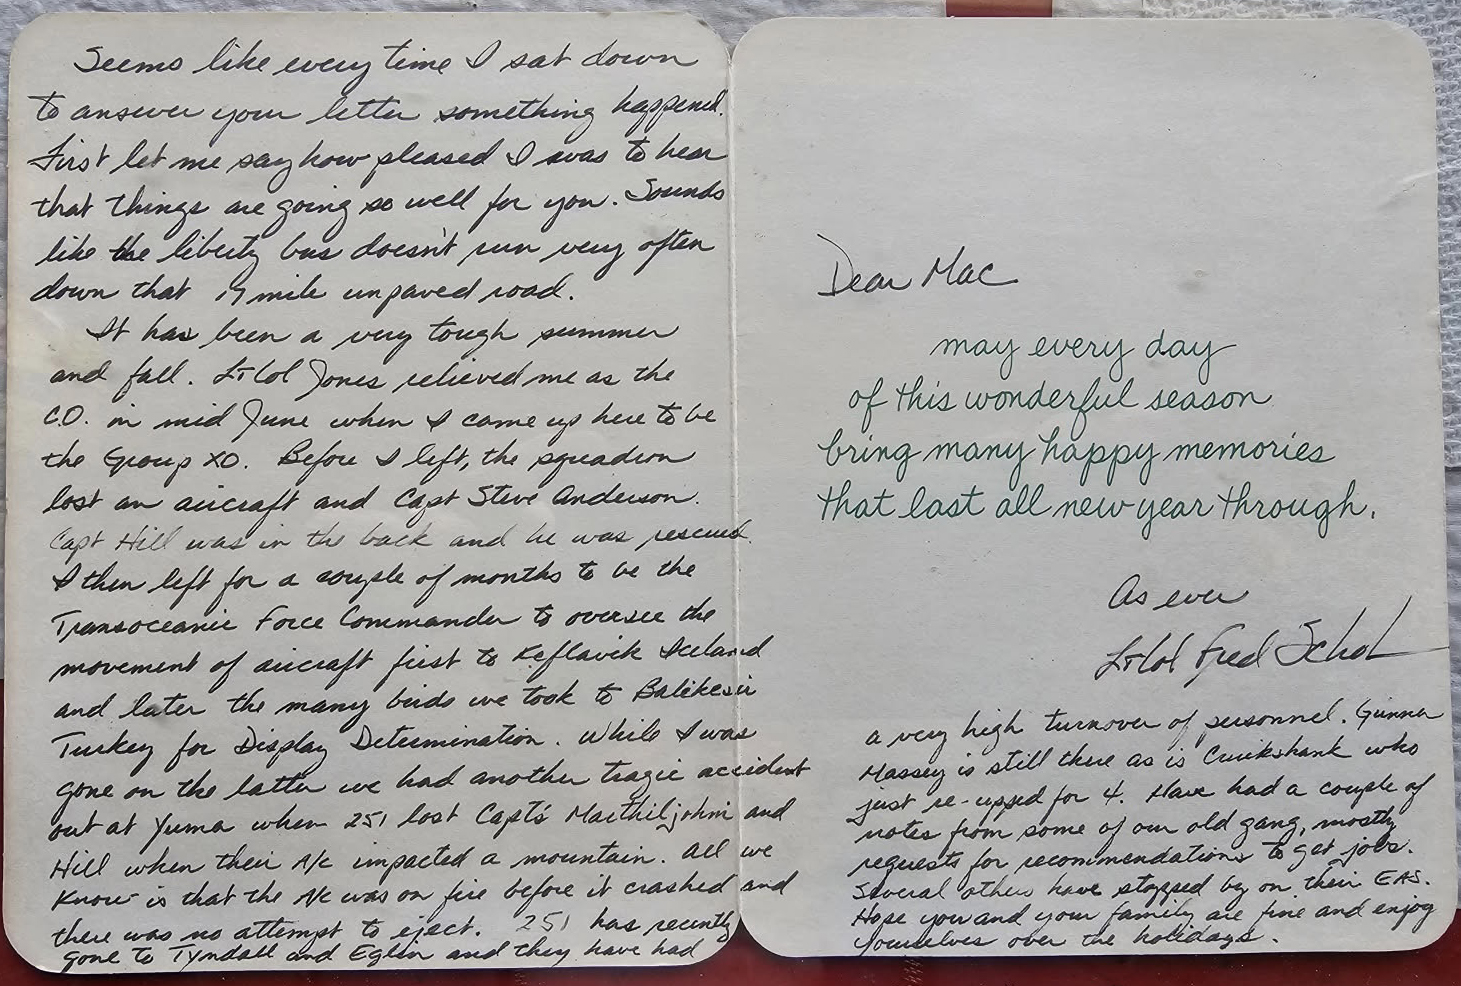 Seems like every time I sat down
to answer your letter something happened.
First let me say how pleased I was to hear
that things are going so well for you. Sounds
like the liberty bus doesn't run very often
down that 17 mile unpaved road.
It has been a very tough summer
and fall. LtCol Jones relieved me as the
C.O. in mid June when I came up here to be
the Group XO. Before I left, the squadron
lost an aircraft and Capt Steve Anderson.
Capt Hill was in the back and he was rescued.
I then left for a couple of months to be the
Transoceanic Force Commander to oversee the
movement of aircraft first to Keflavik Iceland
and later the many birds we took to Balikesir
Turkey for Display Determination. While I was
gone on the latter we had another tragic accident
out at Yuma when 251 lost Capt's and
Hill when their A/c impacted a mountain. All we
know is that the A/c was on fire before it crashed and
there was no attempt to eject. 251 has recently
gone to Tyndall and Eglin and they have had
Dear Mac
may every day
of this wonderful season
bring many happy memories
that last all new year through.
As ever
LtCol Fred Schol
a very high turnover of personnel. Gunner
Massey is still there as is Cruikshank who
just re-upped for 4. Have had a couple of
notes from some of our old gang, mostly
requests for recommendations to get jobs.
Several others have stopped by on their EAS.
Hope you and your family are fine and enjoy
yourselves over the holidays.